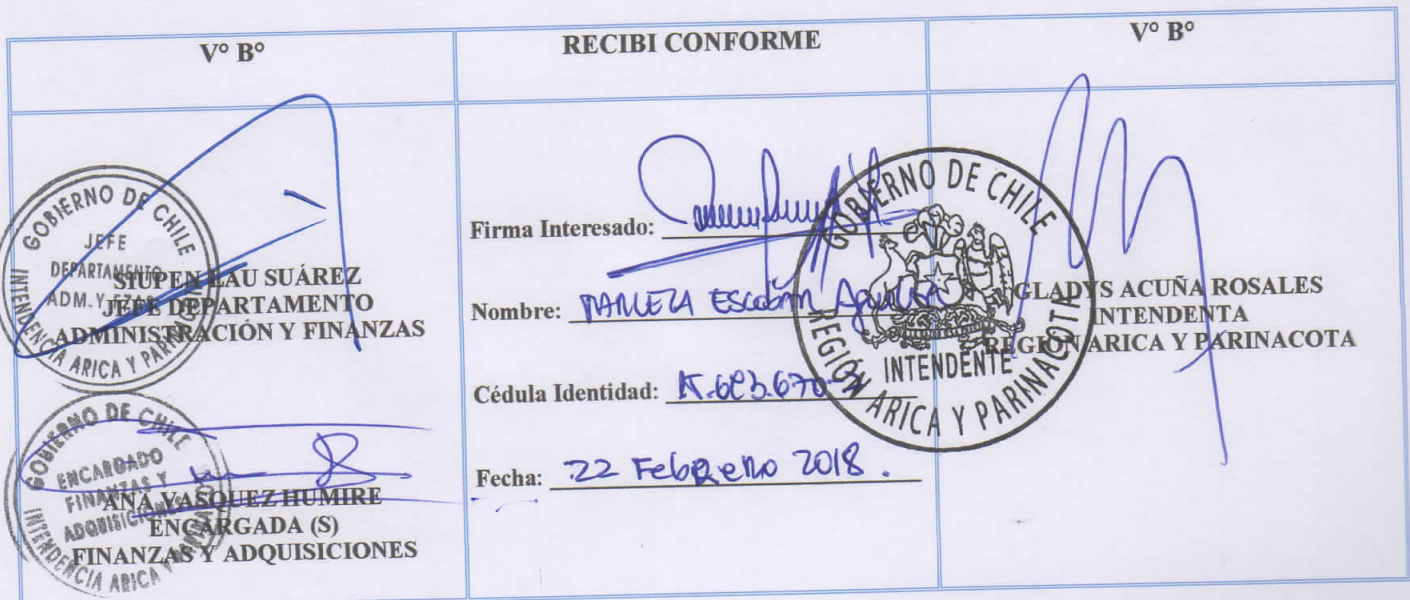 V° B°
RECIBI CONFORME
V° B°
GOBIERNO DE CHILE
JEFE
DEPARTAMENTO
ADM. Y FZAS.
INTENDENCIA ARICA Y PARINACOTA
SIUPEN LAU SUÁREZ
JEFE DEPARTAMENTO
ADMINISTRACIÓN Y FINANZAS
GOBIERNO DE CHILE
ENCARGADO
FINANZAS Y
ADQUISICIONES
INTENDENCIA ARICA Y
ANA VASQUEZ HUMIRE
ENCARGADA (S)
FINANZAS Y ADQUISICIONES
Firma Interesado:
Nombre: Escobar Aguilera
Cédula Identidad:
Fecha: 22 Febrero 2018.
GOBIERNO DE CHILE
INTENDENTE
REGIÓN ARICA Y PARINACOTA
GLADYS ACUÑA ROSALES
INTENDENTA
REGIÓN ARICA Y PARINACOTA